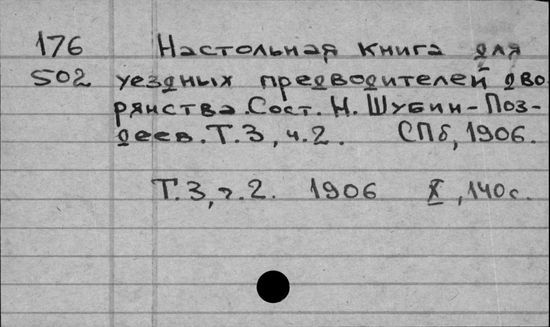 176 Настольная книга для
502 уездных предводителей дво
рянства. Сост. Н. Шубин-Поз-
деев. Т.3, ч.2. СПб, 1906.
Т.3, ч.2. 1906 X, 140 с.